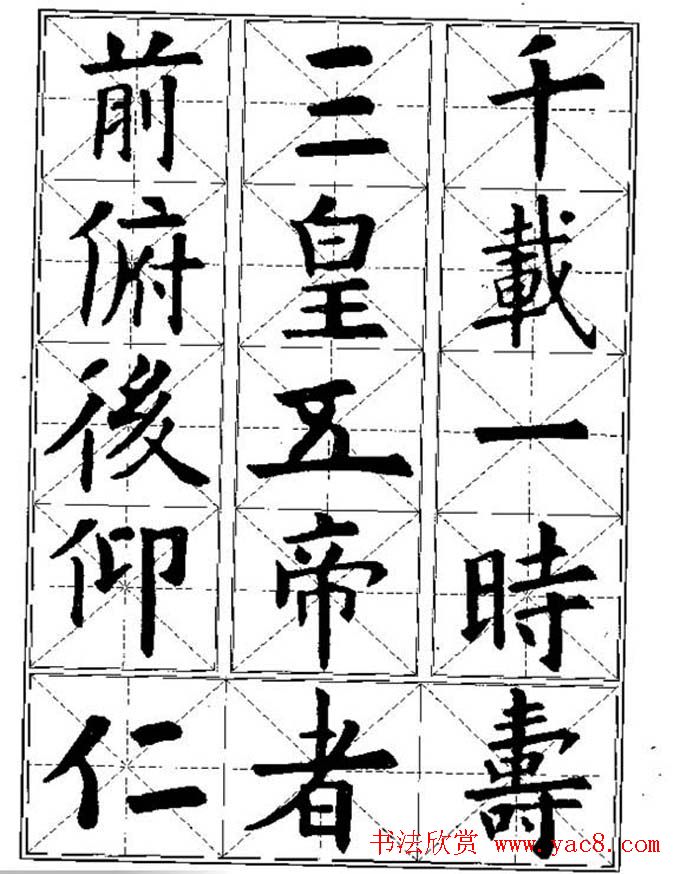 千載一時
三皇五帝
前俯後仰
仁者壽
书法欣赏 www.yac8.com